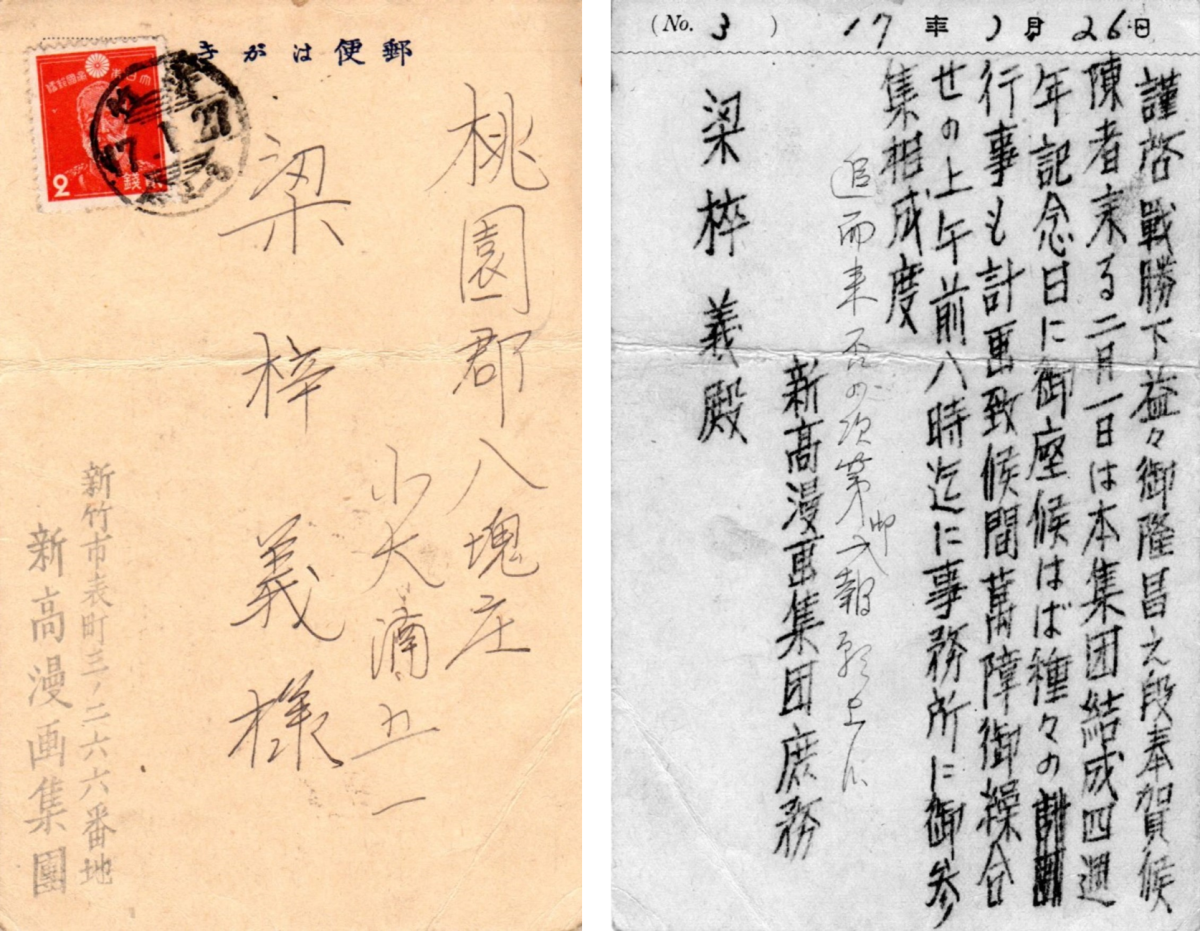 郵便はがき
大日本帝國郵便
2
銭
17.1.27
桃園郡八塊庄
小大湳五一
梁梓義様
新竹市表町三ノ二六六番地
新高漫画集團
(No. 3) 17年1月26日
謹啓 戰勝下益々御隆昌之段奉賀候
陳者来る二月一日は本集団結成四週
年記念日に御座候はば種々の
行事も計画致候間萬障御繰合
せの上午前八時迄に事務所に御参
集相成度
追而来否の次第御一報願上候
新高漫画集団庶務
梁梓義殿